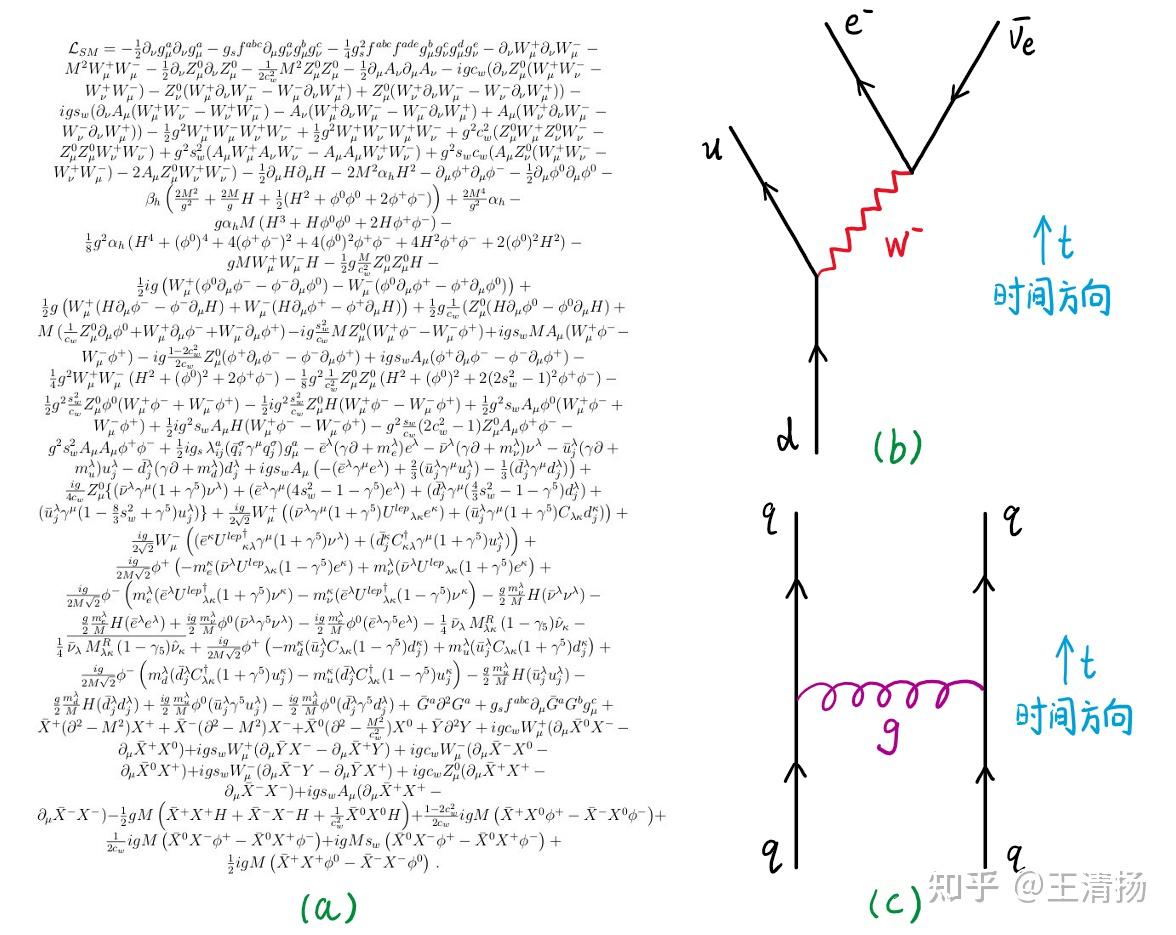 \mathcal{L}_{SM} = -\frac{1}{2}\partial_\nu g^a_\mu \partial_\nu g^a_\mu - g_s f^{abc}\partial_\mu g^a_\nu g^b_\mu g^c_\nu - \frac{1}{4}g^2_s f^{abc}f^{ade}g^b_\mu g^c_\nu g^d_\mu g^e_\nu - \partial_\nu W^+_\mu \partial_\nu W^-_\mu -
M^2 W^+_\mu W^-_\mu - \frac{1}{2}\partial_\nu Z^0_\mu \partial_\nu Z^0_\mu - \frac{1}{2c^2_w}M^2 Z^0_\mu Z^0_\mu - \frac{1}{2}\partial_\mu A_\nu \partial_\mu A_\nu - igc_w(\partial_\nu Z^0_\mu(W^+_\mu W^-_\nu -
W^+_\nu W^-_\mu) - Z^0_\nu(W^+_\mu \partial_\nu W^-_\mu - W^-_\mu \partial_\nu W^+_\mu) + Z^0_\mu(W^+_\nu \partial_\nu W^-_\mu - W^-_\nu \partial_\nu W^+_\mu)) -
igs_w(\partial_\nu A_\mu(W^+_\mu W^-_\nu - W^+_\nu W^-_\mu) - A_\nu(W^+_\mu \partial_\nu W^-_\mu - W^-_\mu \partial_\nu W^+_\mu) + A_\mu(W^+_\nu \partial_\nu W^-_\mu -
W^-_\nu \partial_\nu W^+_\mu)) - \frac{1}{2}g^2 W^+_\mu W^-_\mu W^+_\nu W^-_\nu + \frac{1}{2}g^2 W^+_\mu W^-_\nu W^+_\mu W^-_\nu + g^2 c^2_w(Z^0_\mu W^+_\mu Z^0_\nu W^-_\nu -
Z^0_\mu Z^0_\mu W^+_\nu W^-_\nu) + g^2 s^2_w(A_\mu W^+_\mu A_\nu W^-_\nu - A_\mu A_\mu W^+_\nu W^-_\nu) + g^2 s_w c_w(A_\mu Z^0_\nu(W^+_\mu W^-_\nu -
W^+_\nu W^-_\mu) - 2A_\mu Z^0_\mu W^+_\nu W^-_\nu) - \frac{1}{2}\partial_\mu H \partial_\mu H - 2M^2 \alpha_h H^2 - \partial_\mu \phi^+ \partial_\mu \phi^- - \frac{1}{2}\partial_\mu \phi^0 \partial_\mu \phi^0 -
\beta_h \left(\frac{2M^2}{g^2} + \frac{2M}{g}H + \frac{1}{2}(H^2 + \phi^0\phi^0 + 2\phi^+\phi^-)\right) + \frac{2M^4}{g^2}\alpha_h -
g\alpha_h M (H^3 + H\phi^0\phi^0 + 2H\phi^+\phi^-) -
\frac{1}{8}g^2\alpha_h (H^4 + (\phi^0)^4 + 4(\phi^+\phi^-)^2 + 4(\phi^0)^2\phi^+\phi^- + 4H^2\phi^+\phi^- + 2(\phi^0)^2H^2) -
gMW^+_\mu W^-_\mu H - \frac{1}{2}g\frac{M}{c^2_w}Z^0_\mu Z^0_\mu H -
\frac{1}{2}ig (W^+_\mu(\phi^0\partial_\mu\phi^- - \phi^-\partial_\mu\phi^0) - W^-_\mu(\phi^0\partial_\mu\phi^+ - \phi^+\partial_\mu\phi^0)) +
\frac{1}{2}g (W^+_\mu(H\partial_\mu\phi^- - \phi^-\partial_\mu H) + W^-_\mu(H\partial_\mu\phi^+ - \phi^+\partial_\mu H)) + \frac{1}{2}g\frac{1}{c_w}(Z^0_\mu(H\partial_\mu\phi^0 - \phi^0\partial_\mu H) +
M (\frac{1}{c_w}Z^0_\mu\partial_\mu\phi^0 + W^+_\mu\partial_\mu\phi^- + W^-_\mu\partial_\mu\phi^+) - ig\frac{s^2_w}{c_w}MZ^0_\mu(W^+_\mu\phi^- - W^-_\mu\phi^+) + igs_w MA_\mu(W^+_\mu\phi^- -
W^-_\mu\phi^+) - ig\frac{1-2c^2_w}{2c_w}Z^0_\mu(\phi^+\partial_\mu\phi^- - \phi^-\partial_\mu\phi^+) + igs_w A_\mu(\phi^+\partial_\mu\phi^- - \phi^-\partial_\mu\phi^+) -
\frac{1}{4}g^2W^+_\mu W^-_\mu (H^2 + (\phi^0)^2 + 2\phi^+\phi^-) - \frac{1}{8}g^2\frac{1}{c^2_w}Z^0_\mu Z^0_\mu (H^2 + (\phi^0)^2 + 2(2s^2_w - 1)^2\phi^+\phi^-) -
\frac{1}{2}g^2\frac{s^2_w}{c_w}Z^0_\mu\phi^0(W^+_\mu\phi^- + W^-_\mu\phi^+) - \frac{1}{2}ig^2\frac{s^2_w}{c_w}Z^0_\mu H(W^+_\mu\phi^- - W^-_\mu\phi^+) + \frac{1}{2}g^2s_w A_\mu\phi^0(W^+_\mu\phi^- +
W^-_\mu\phi^+) + \frac{1}{2}ig^2s_w A_\mu H(W^+_\mu\phi^- - W^-_\mu\phi^+) - g^2\frac{s_w}{c_w}(2c^2_w - 1)Z^0_\mu A_\mu\phi^+\phi^- -
g^2s^2_w A_\mu A_\mu\phi^+\phi^- + \frac{1}{2}ig_s \lambda^a_{ij}(\bar{q}^\sigma_i\gamma^\mu q^\sigma_j)g^a_\mu - \bar{e}^\lambda(\gamma\partial + m^\lambda_e)e^\lambda - \bar{\nu}^\lambda(\gamma\partial + m^\lambda_\nu)\nu^\lambda - \bar{u}^\lambda_j(\gamma\partial +
m^\lambda_u)u^\lambda_j - \bar{d}^\lambda_j(\gamma\partial + m^\lambda_d)d^\lambda_j + igs_w A_\mu (-(\bar{e}^\lambda\gamma^\mu e^\lambda) + \frac{2}{3}(\bar{u}^\lambda_j\gamma^\mu u^\lambda_j) - \frac{1}{3}(\bar{d}^\lambda_j\gamma^\mu d^\lambda_j)) +
\frac{ig}{4c_w}Z^0_\mu\{(\bar{\nu}^\lambda\gamma^\mu(1+\gamma^5)\nu^\lambda) + (\bar{e}^\lambda\gamma^\mu(4s^2_w - 1 - \gamma^5)e^\lambda) + (\bar{d}^\lambda_j\gamma^\mu(\frac{4}{3}s^2_w - 1 - \gamma^5)d^\lambda_j) +
(\bar{u}^\lambda_j\gamma^\mu(1 - \frac{8}{3}s^2_w + \gamma^5)u^\lambda_j)\} + \frac{ig}{2\sqrt{2}}W^+_\mu ((\bar{\nu}^\lambda\gamma^\mu(1+\gamma^5)U^{lep}{}_{\lambda\kappa}e^\kappa) + (\bar{u}^\lambda_j\gamma^\mu(1+\gamma^5)C_{\lambda\kappa}d^\kappa_j)) +
\frac{ig}{2\sqrt{2}}W^-_\mu \left((\bar{e}^\kappa U^{lep\dagger}{}_{\kappa\lambda}\gamma^\mu(1+\gamma^5)\nu^\lambda) + (\bar{d}^\kappa_j C^\dagger_{\kappa\lambda}\gamma^\mu(1+\gamma^5)u^\lambda_j)\right) +
\frac{ig}{2M\sqrt{2}}\phi^+ (-m^\kappa_e(\bar{\nu}^\lambda U^{lep}{}_{\lambda\kappa}(1-\gamma^5)e^\kappa) + m^\lambda_\nu(\bar{\nu}^\lambda U^{lep}{}_{\lambda\kappa}(1+\gamma^5)e^\kappa) +
\frac{ig}{2M\sqrt{2}}\phi^- \left(m^\lambda_e(\bar{e}^\lambda U^{lep\dagger}{}_{\lambda\kappa}(1+\gamma^5)\nu^\kappa) - m^\kappa_\nu(\bar{e}^\lambda U^{lep\dagger}{}_{\lambda\kappa}(1-\gamma^5)\nu^\kappa\right) - \frac{g}{2}\frac{m^\lambda_\nu}{M}H(\bar{\nu}^\lambda\nu^\lambda) -
\frac{g}{2}\frac{m^\lambda_e}{M}H(\bar{e}^\lambda e^\lambda) + \frac{ig}{2}\frac{m^\lambda_\nu}{M}\phi^0(\bar{\nu}^\lambda\gamma^5\nu^\lambda) - \frac{ig}{2}\frac{m^\lambda_e}{M}\phi^0(\bar{e}^\lambda\gamma^5e^\lambda) - \frac{1}{4}\bar{\nu}_\lambda M^R_{\lambda\kappa}(1-\gamma_5)\hat{\nu}_\kappa -
\frac{1}{4}\overline{\bar{\nu}_\lambda M^R_{\lambda\kappa}(1-\gamma_5)\hat{\nu}_\kappa} + \frac{ig}{2M\sqrt{2}}\phi^+ (-m^\kappa_d(\bar{u}^\lambda_j C_{\lambda\kappa}(1-\gamma^5)d^\kappa_j) + m^\lambda_u(\bar{u}^\lambda_j C_{\lambda\kappa}(1+\gamma^5)d^\kappa_j) +
\frac{ig}{2M\sqrt{2}}\phi^- \left(m^\lambda_d(\bar{d}^\lambda_j C^\dagger_{\lambda\kappa}(1+\gamma^5)u^\kappa_j) - m^\kappa_u(\bar{d}^\lambda_j C^\dagger_{\lambda\kappa}(1-\gamma^5)u^\kappa_j\right) - \frac{g}{2}\frac{m^\lambda_u}{M}H(\bar{u}^\lambda_j u^\lambda_j) -
\frac{g}{2}\frac{m^\lambda_d}{M}H(\bar{d}^\lambda_j d^\lambda_j) + \frac{ig}{2}\frac{m^\lambda_u}{M}\phi^0(\bar{u}^\lambda_j\gamma^5u^\lambda_j) - \frac{ig}{2}\frac{m^\lambda_d}{M}\phi^0(\bar{d}^\lambda_j\gamma^5d^\lambda_j) + \bar{G}^a\partial^2G^a + g_s f^{abc}\partial_\mu\bar{G}^aG^bg^c_\mu +
\bar{X}^+(\partial^2 - M^2)X^+ + \bar{X}^-(\partial^2 - M^2)X^- + \bar{X}^0(\partial^2 - \frac{M^2}{c^2_w})X^0 + \bar{Y}\partial^2Y + igc_w W^+_\mu(\partial_\mu\bar{X}^0X^- -
\partial_\mu\bar{X}^+X^0) + igs_w W^+_\mu(\partial_\mu\bar{Y}X^- - \partial_\mu\bar{X}^+Y) + igc_w W^-_\mu(\partial_\mu\bar{X}^-X^0 -
\partial_\mu\bar{X}^0X^+) + igs_w W^-_\mu(\partial_\mu\bar{X}^-Y - \partial_\mu\bar{Y}X^+) + igc_w Z^0_\mu(\partial_\mu\bar{X}^+X^+ -
\partial_\mu\bar{X}^-X^-) + igs_w A_\mu(\partial_\mu\bar{X}^+X^+ -
\partial_\mu\bar{X}^-X^-) - \frac{1}{2}gM \left(\bar{X}^+X^+H + \bar{X}^-X^-H + \frac{1}{c^2_w}\bar{X}^0X^0H\right) + \frac{1-2c^2_w}{2c_w}igM (\bar{X}^+X^0\phi^+ - \bar{X}^-X^0\phi^-) +
\frac{1}{2c_w}igM (\bar{X}^0X^-\phi^+ - \bar{X}^0X^+\phi^-) + igMs_w (\bar{X}^0X^-\phi^+ - \bar{X}^0X^+\phi^-) +
\frac{1}{2}igM (\bar{X}^+X^+\phi^0 - \bar{X}^-X^-\phi^0) .
(a)
e⁻
ν̄e
u
W⁻
t
时间方向
d
(b)
q
q
t
时间方向
g
q
q
(c)
知乎 @王清扬